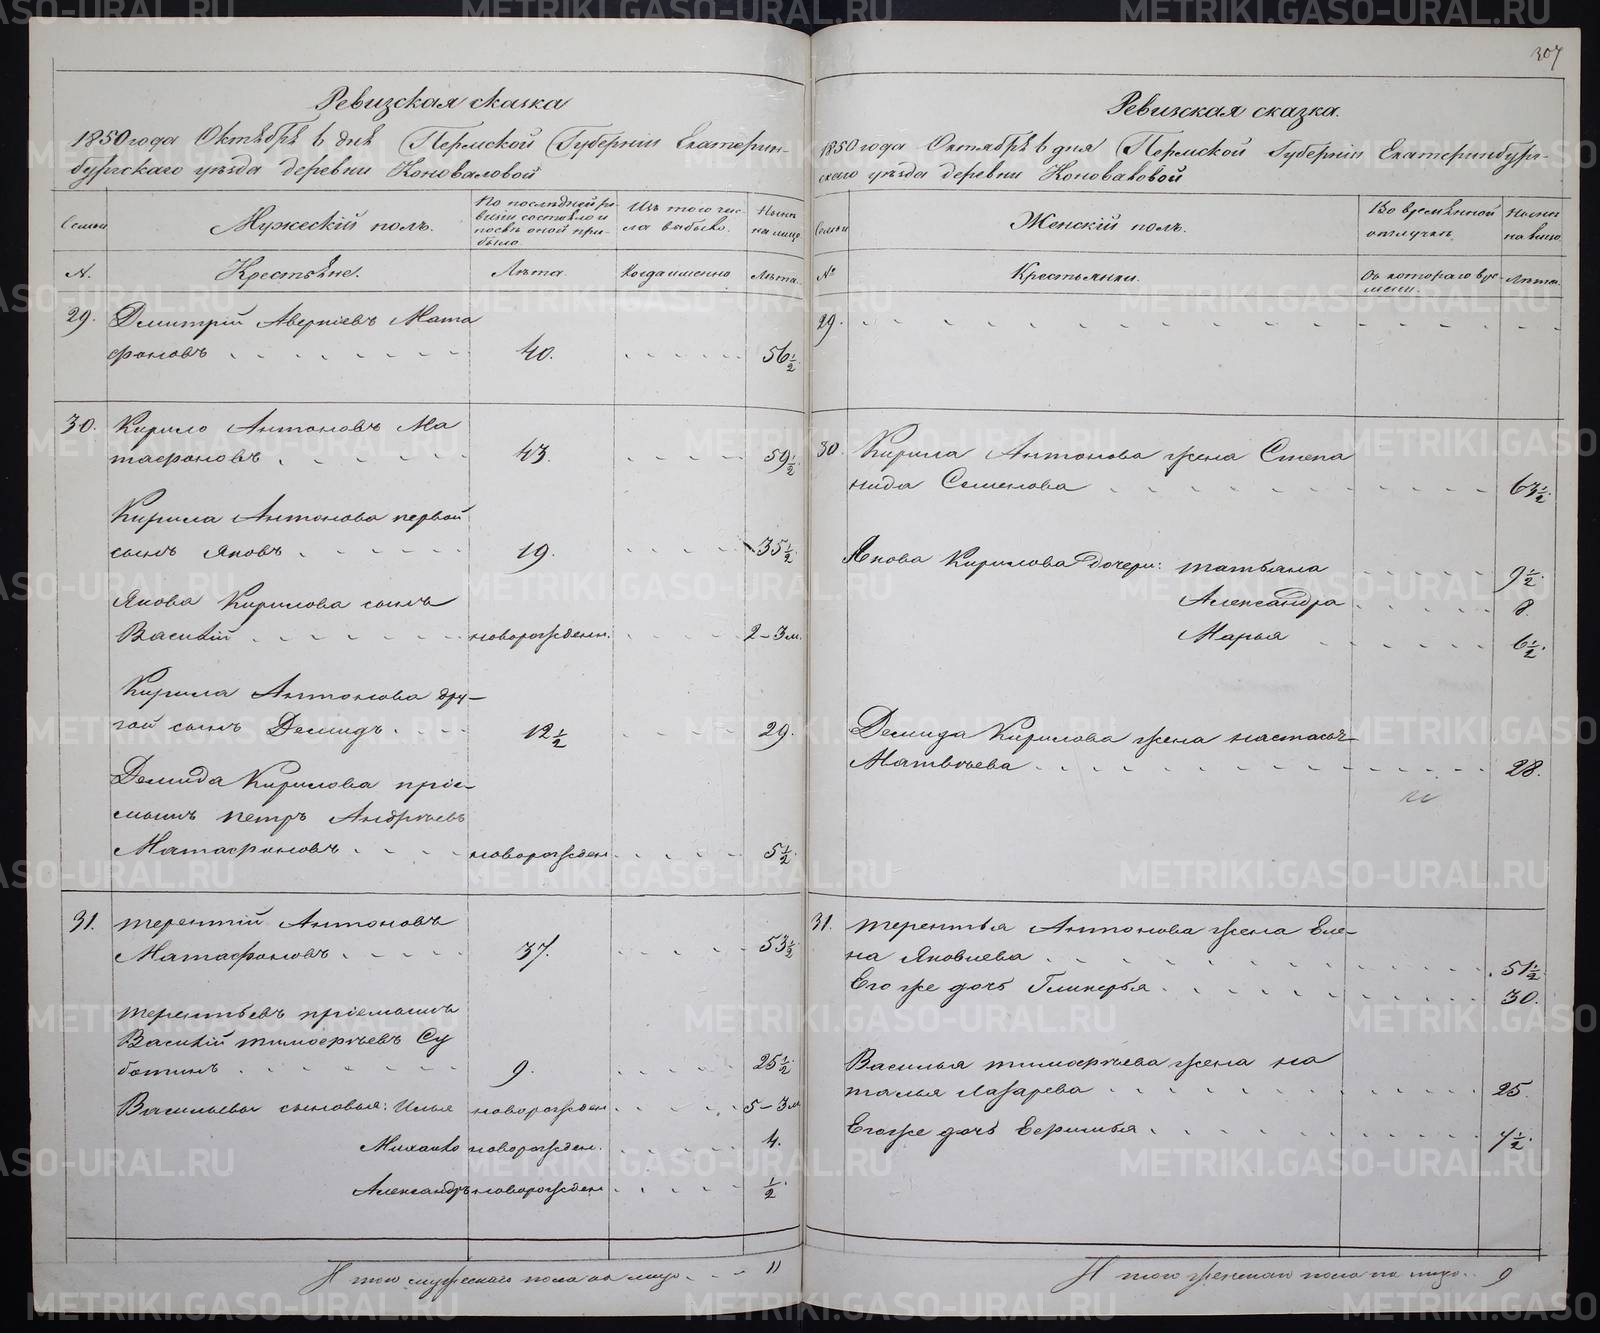 307
Ревизская сказка
1850 года Октября 6 дня Пермской Губерніи Екатерин-
бургскаго уѣзда деревни Коноваловой
Семьи
Мужескій полъ.
По послѣдней ре-
визіи состояло и
послѣ оной при-
было
Изъ того чис-
ла выбыло.
Нынѣ
на лицо
№.
Крестьяне.
Лѣта.
Когда именно
Лѣта.
29. Дмитрій Аверкіевъ Мата
фоновъ 40. 56½
30. Кирило Антоновъ Ма
тафоновъ 43. 59½
Кирила Антонова первой
сынъ Яковъ 19. 35½
Якова Кирилова сынъ
Василій новорожденн. 2-3 м.
Кирила Антонова дру-
гой сынъ Демидъ 12½ 29.
Демида Кирилова пріе-
мышъ Петръ Андреевъ
Матафоновъ новорожден 5½
31. Терентій Антоновъ
Матафоновъ 37. 53½
Терентьевъ пріемышъ
Василій Тимофеевъ Су
ботинъ 9. 25½
Васильевы сыновья: Илья новорожден 5-3 м
Михайло новорожден. 4.
Александръ новорожден ½
Итого мужескаго пола на лицо 11
Ревизская сказка.
1850 года Октября 6 дня Пермской Губерніи Екатеринбург-
скаго уѣзда деревни Коноваловой
Семьи
Женскій полъ.
Во временной
отлучкѣ
Нынѣ
на лицо.
№
Крестьянки.
Съ котораго вре-
мени.
Лѣта.
29.
30. Кирила Антонова жена Степа
нида Семенова 63½
Якова Кирилова дочери: Татьяна 9½
Александра 8.
Марья 6½
Демида Кирилова жена Настасья
Матвѣева 28.
31. Терентья Антонова жена Еле-
на Яковлева 51½
Его же дочь Гликерья 30.
Василья Тимофеева жена На
талья Лазарева 25.
Его же дочь Ефимья 7½
Итого женскаго пола на лицо 9
METRIKI.GASO-URAL.RU